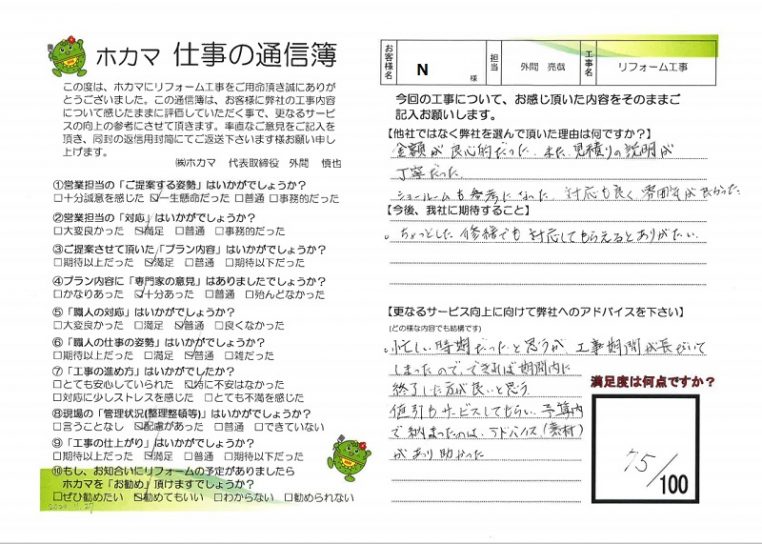 ホカマ 仕事の通信簿
この度は、ホカマにリフォーム工事をご用命頂き誠にありが
とうございました。この通信簿は、お客様に弊社の工事内容
について感じたままに評価していただく事で、更なるサービ
スの向上の参考にさせて頂きます。率直なご意見をご記入を
頂き、同封の返信用封筒にてご返送下さいます様お願い申し
上げます。
㈱ホカマ 代表取締役 外間 慎也
①営業担当の「ご提案する姿勢」はいかがでしょうか?
□十分誠意を感じた ☑一生懸命だった □普通 □事務的だった
②営業担当の「対応」はいかがでしょうか?
□大変良かった ☑満足 □普通 □事務的だった
③ご提案させて頂いた「プラン内容」はいかがでしょうか?
□期待以上だった ☑満足 □普通 □期待以下だった
④プラン内容に「専門家の意見」はありましたでしょうか?
□かなりあった ☑十分あった □普通 □殆んどなかった
⑤「職人の対応」はいかがでしょうか?
□大変良かった □満足 ☑普通 □良くなかった
⑥「職人の仕事の姿勢」はいかがでしょうか?
□期待以上だった □満足 ☑普通 □雑だった
⑦「工事の進め方」はいかがでしたか?
□とても安心していられた ☑特に不安はなかった
□対応に少しストレスを感じた □とても不満を感じた
⑧現場の「管理状況(整理整頓等)」はいかがでしょうか?
□言うことなし ☑配慮があった □普通 □できていない
⑨「工事の仕上がり」はいかがでしょうか?
□期待以上だった ☑満足 □普通 □期待以下だった
⑩もし、お知合いにリフォームの予定がありましたら
ホカマを「お勧め」頂けますでしょうか?
□ぜひ勧めたい ☑勧めてもいい □わからない □勧められない
お客様名 N 様 担当 外間 工事名 リフォーム工事
今回の工事について、お感じ頂いた内容をそのままご
記入お願いします。
【他社ではなく弊社を選んで頂いた理由は何ですか?】
金額が良心的だった。また、見積りの説明が
丁寧だった。
ショールームも参考になった。対応も良く雰囲気が良かった
【今後、我社に期待すること】
ちょっとした修繕でも対応してもらえるとありがたい。
【更なるサービス向上に向けて弊社へのアドバイスを下さい】
(どの様な内容でも結構です)
忙しい時期だったと思うが、工事期間が長びいて
しまったので、できれば期間内に
終了した方が良いと思う
値引もサービスしてもらい、予算内
で納まったのは、アドバイス(素材)
があり助かった
満足度は何点ですか?
75/100